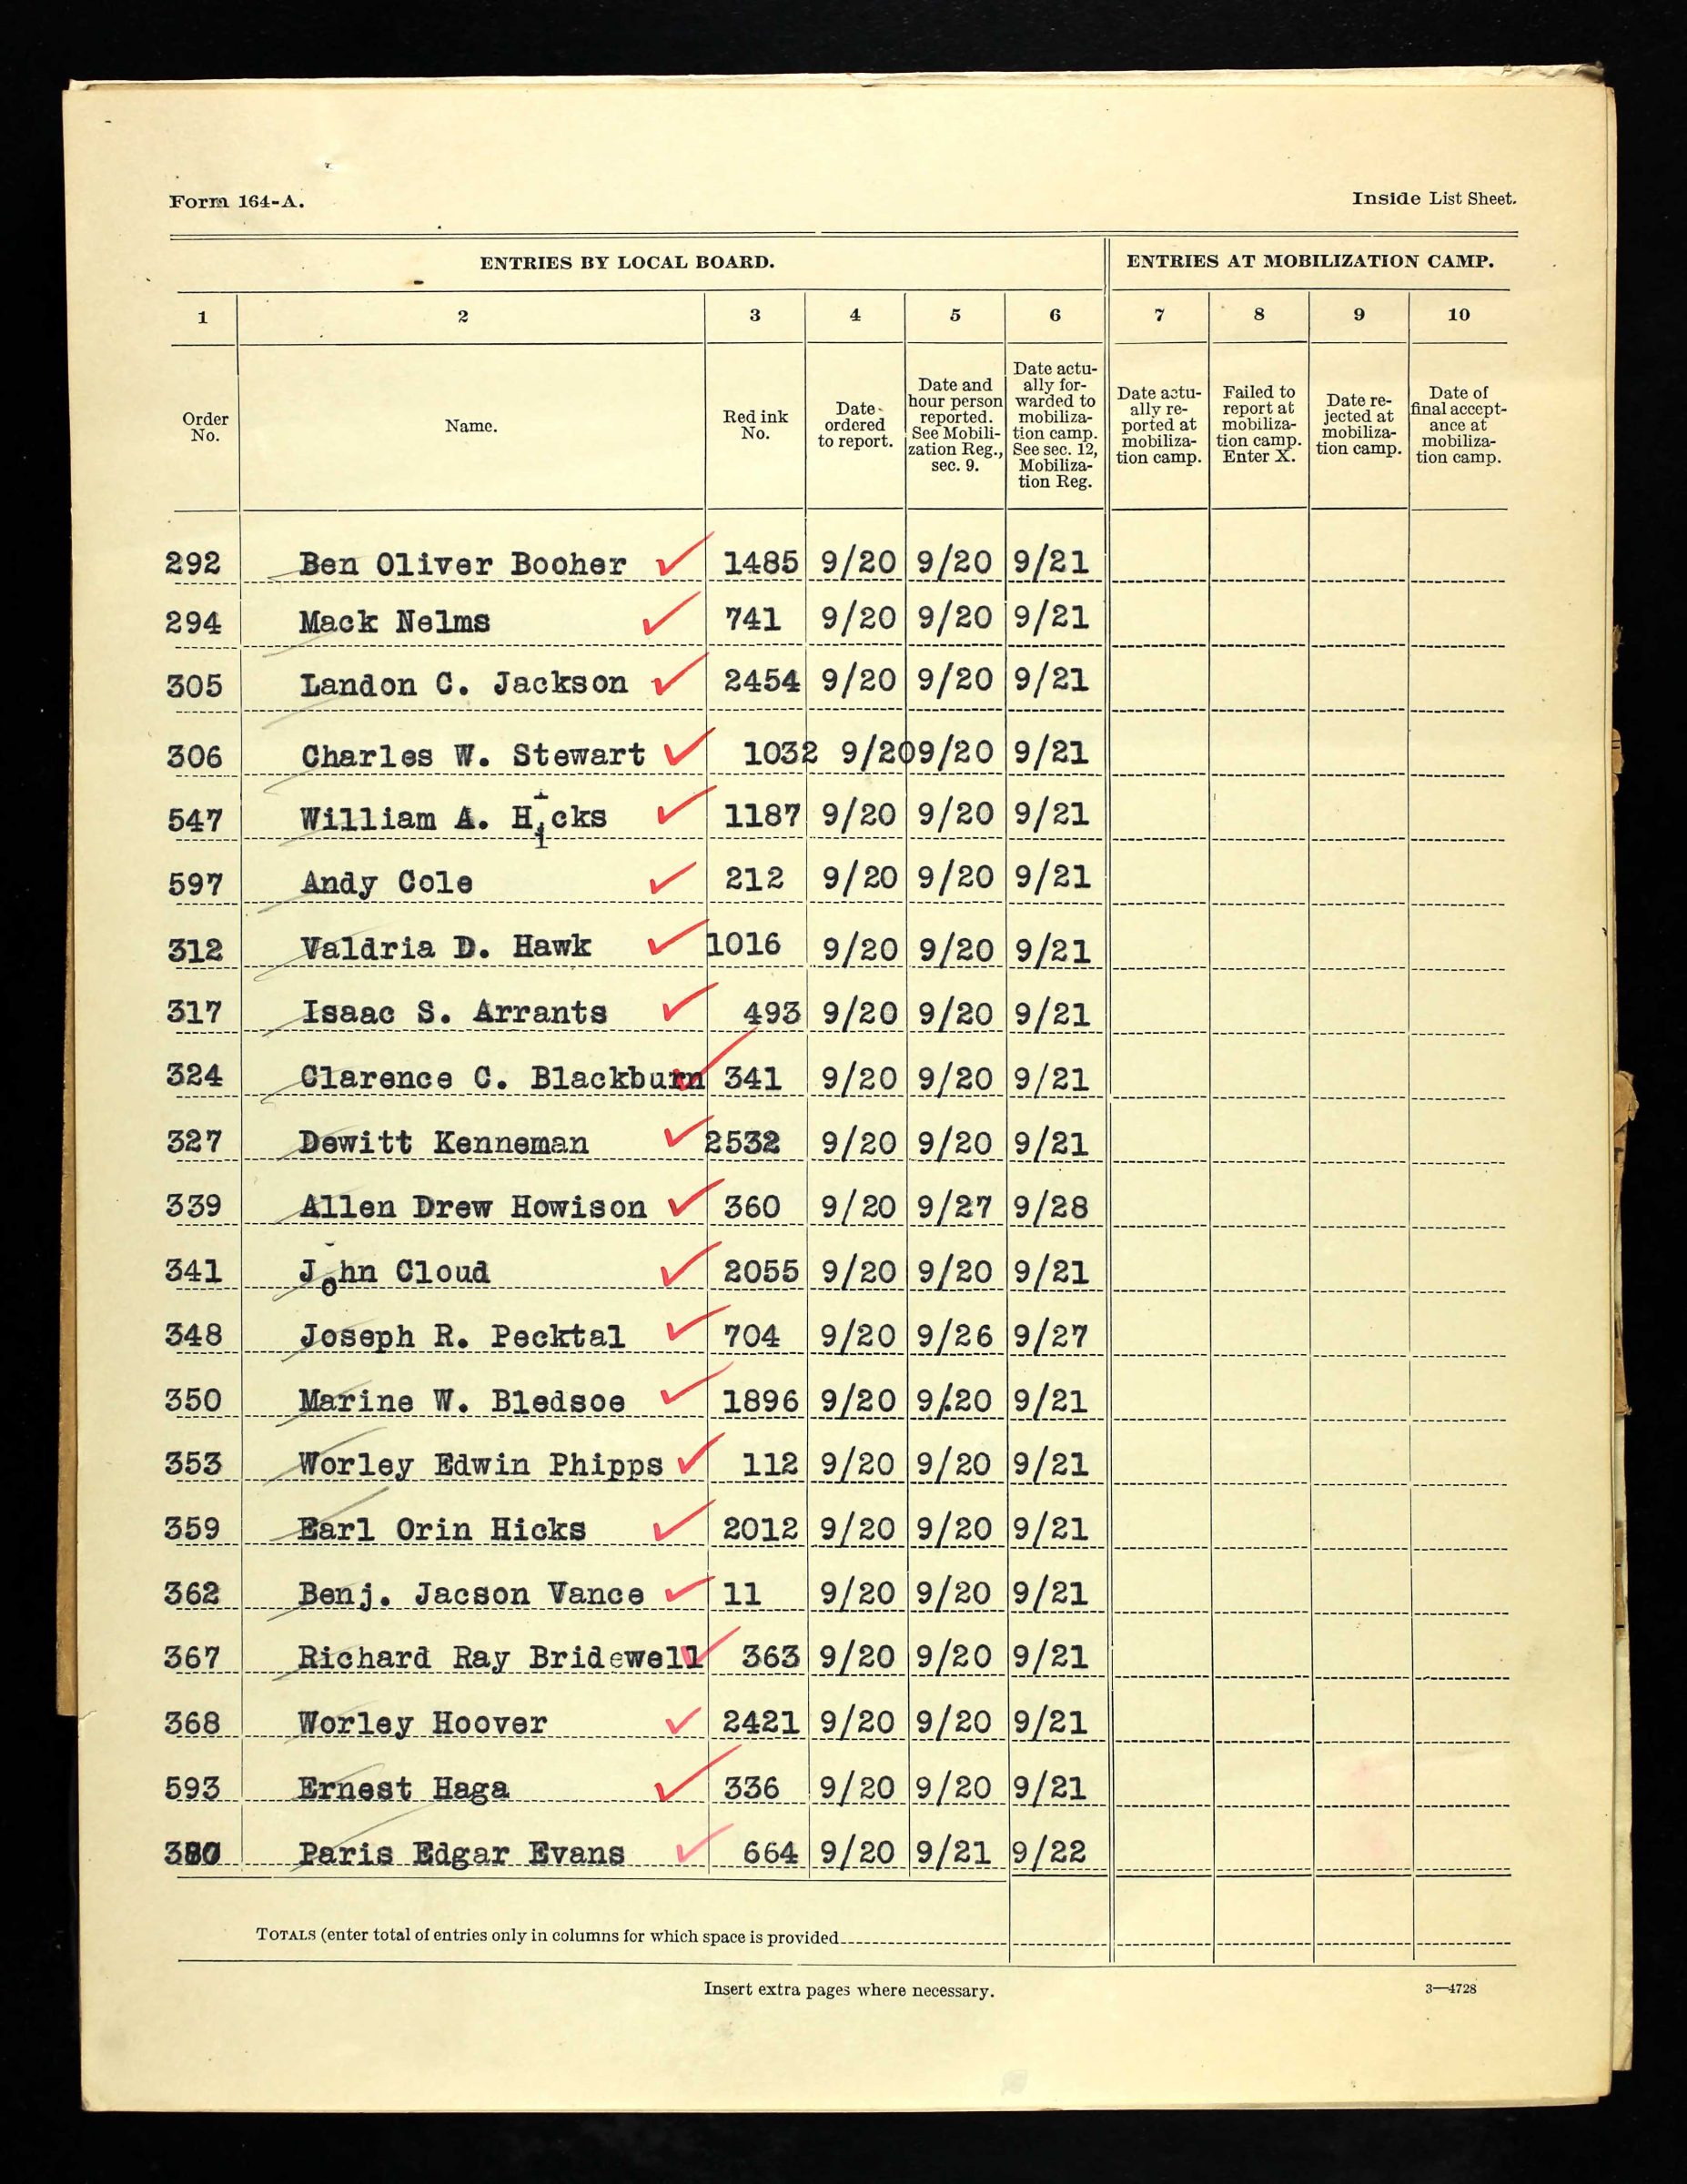 Form 164-A.
Inside List Sheet.
ENTRIES BY LOCAL BOARD.
ENTRIES AT MOBILIZATION CAMP.
1 2 3 4 5 6 7 8 9 10
Order No.
Name.
Red ink No.
Date ordered to report.
Date and hour person reported. See Mobilization Reg., sec. 9.
Date actually forwarded to mobilization camp. See sec. 12, Mobilization Reg.
Date actually reported at mobilization camp.
Failed to report at mobilization camp. Enter X.
Date rejected at mobilization camp.
Date of final acceptance at mobilization camp.
292 Ben Oliver Booher 1485 9/20 9/20 9/21
294 Mack Nelms 741 9/20 9/20 9/21
305 Landon C. Jackson 2454 9/20 9/20 9/21
306 Charles W. Stewart 1032 9/20 9/20 9/21
547 William A. Hicks 1187 9/20 9/20 9/21
597 Andy Cole 212 9/20 9/20 9/21
312 Valdria D. Hawk 1016 9/20 9/20 9/21
317 Isaac S. Arrants 493 9/20 9/20 9/21
324 Clarence C. Blackburn 341 9/20 9/20 9/21
327 Dewitt Kenneman 2532 9/20 9/20 9/21
339 Allen Drew Howison 360 9/20 9/27 9/28
341 John Cloud 2055 9/20 9/20 9/21
348 Joseph R. Pecktal 704 9/20 9/26 9/27
350 Marine W. Bledsoe 1896 9/20 9/.20 9/21
353 Worley Edwin Phipps 112 9/20 9/20 9/21
359 Earl Orin Hicks 2012 9/20 9/20 9/21
362 Benj. Jacson Vance 11 9/20 9/20 9/21
367 Richard Ray Bridewell 363 9/20 9/20 9/21
368 Worley Hoover 2421 9/20 9/20 9/21
593 Ernest Haga 336 9/20 9/20 9/21
380 Paris Edgar Evans 664 9/20 9/21 9/22
TOTALS (enter total of entries only in columns for which space is provided
Insert extra pages where necessary.
3—4728